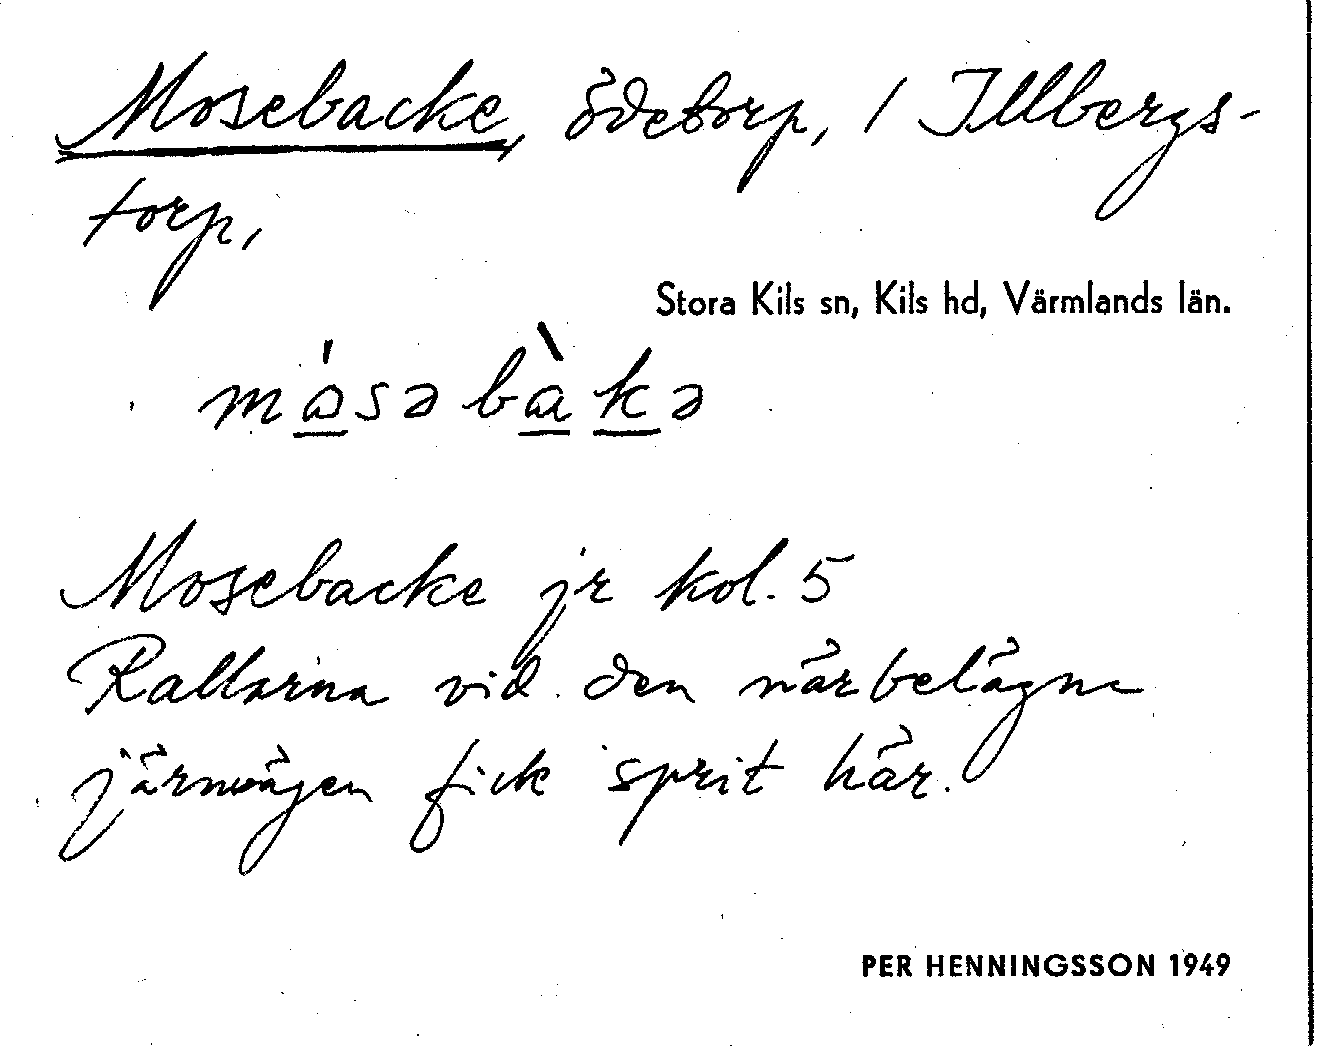 Mosebacke, ödetorp, / Illbergs-
torp,
Stora Kils sn, Kils hd, Värmlands län.
mósəbàkə
Mosebacke jr kol. 5
Rallarna vid den närbelägna
järnvägen fick sprit här.
PER HENNINGSSON 1949